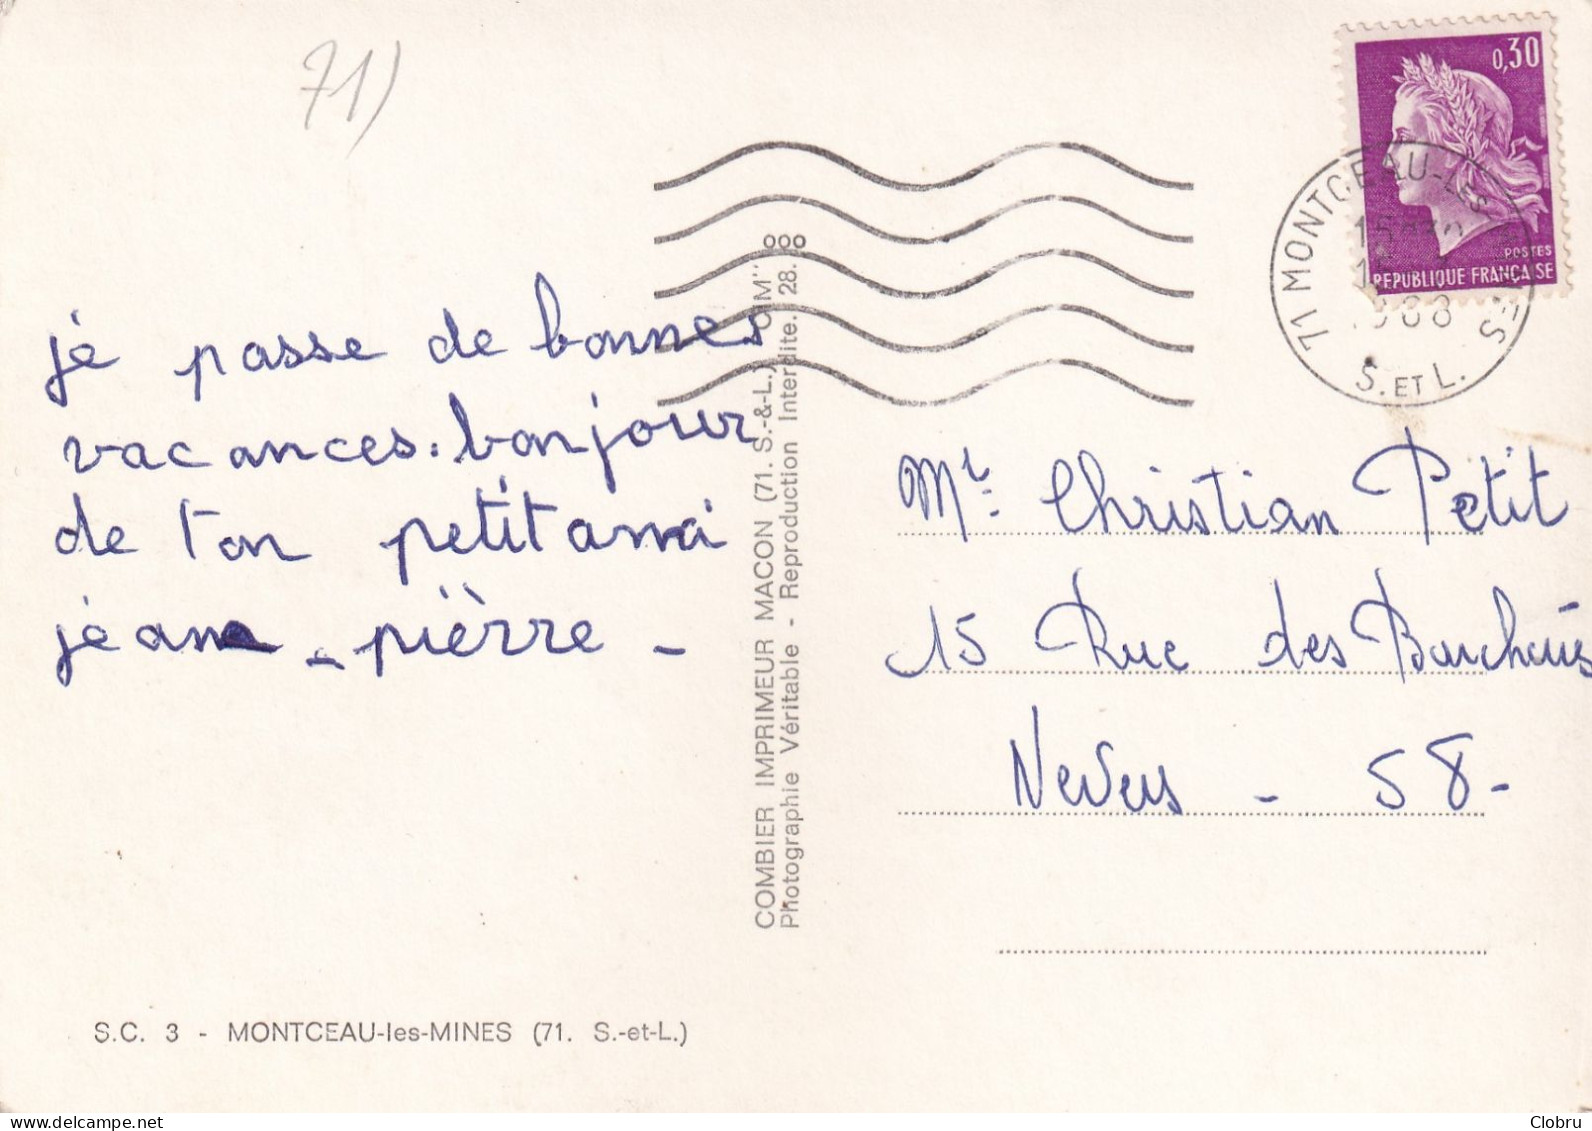 71)
0,30
POSTES
REPUBLIQUE FRANÇAISE
71 MONTCEAU-LES-MINES
S. ET L.
je passe de bonnes
vacances. bonjour
de ton petit ami
jean - pièrre -
COMBIER IMPRIMEUR MACON (71. S.-&-L.) "CIM"
Photographie Véritable - Reproduction Interdite. 28.
Mr. Christian Petit
15 Rue des
Nevers - 58 -
S.C. 3 - MONTCEAU-les-MINES (71. S.-et-L.)
Delcampe.net
Clobru